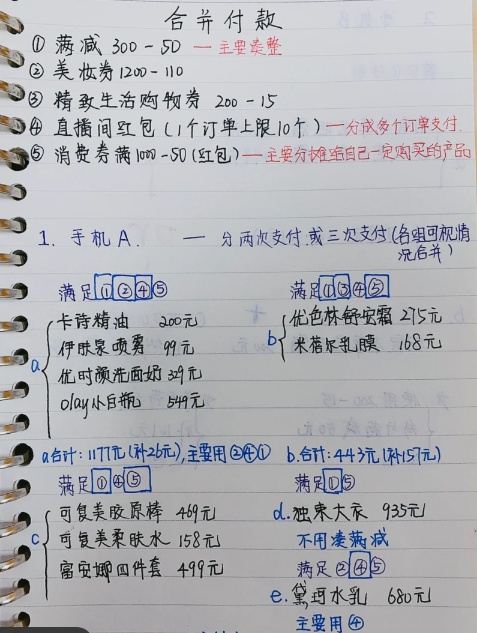 合并付款
① 满减 300-50 — 主要凑整
② 美妆券1200-110
③ 精致生活购物券 200-15
④ 直播间红包(1个订单上限10个) — 分成多个订单支付.
⑤ 消费券满1000-50(红包) — 主要分摊给自己一定购买的产品
1. 手机A. — 分两次支付.或三次支付(各组可视情况合并)
满足①②④⑤
a
卡诗精油 200元
伊肤泉喷雾 99元
优时颜洗面奶 329元
olay小白瓶 549元
满足①③④⑤
b
优色林舒安霜 275元
米蓓尔乳膜 168元
a.合计: 1177元(补26元),主要用②④①
b.合计: 443元(补157元)
满足①④⑤
c
可复美胶原棒 469元
可复美柔肤水 158元
富安娜四件套 499元
满足①⑤
d.独束大衣 935元
不用凑满减
满足②④⑤
e.黛珂水乳 680元
主要用④